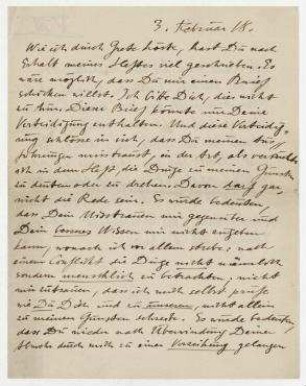 3. Februar 18.
Wie ich durch Grete hörte, hast Du nach
Erhalt meines Heftes viel geschrieben. Es
wäre möglich, dass Du mir einen Brief
schicken willst. Ich bitte Dich, dies nicht
zu tun. Dieser Brief könnte nur Deine
Verteidigung enthalten. Und diese Verteidig-
ung schlösse in sich, dass Du meinen Aus-
führungen misstraust, in der Art, als versuchte
ich in dem Heft, die Dinge zu meinen Gunsten
zu deuten oder zu drehen. Davon darf gar
nicht die Rede sein. Es würde bedeuten,
dass Dein Misstrauen mir gegenüber und
Dein Wissen mir nicht
kann, wonach ich vor allem strebe: nach
einem Conflikt die Dinge nicht männlich
sondern menschlich zu betrachten; nicht
mir zutrauen, dass ich mich selbst prüfe
wie Du Dich und zu unseren, nicht allein
zu meinen Gunsten schreibe. Es würde bedeuten
dass Du wieder nach Überwindung Deiner
durch mich zu einer Verzeihung gelangen